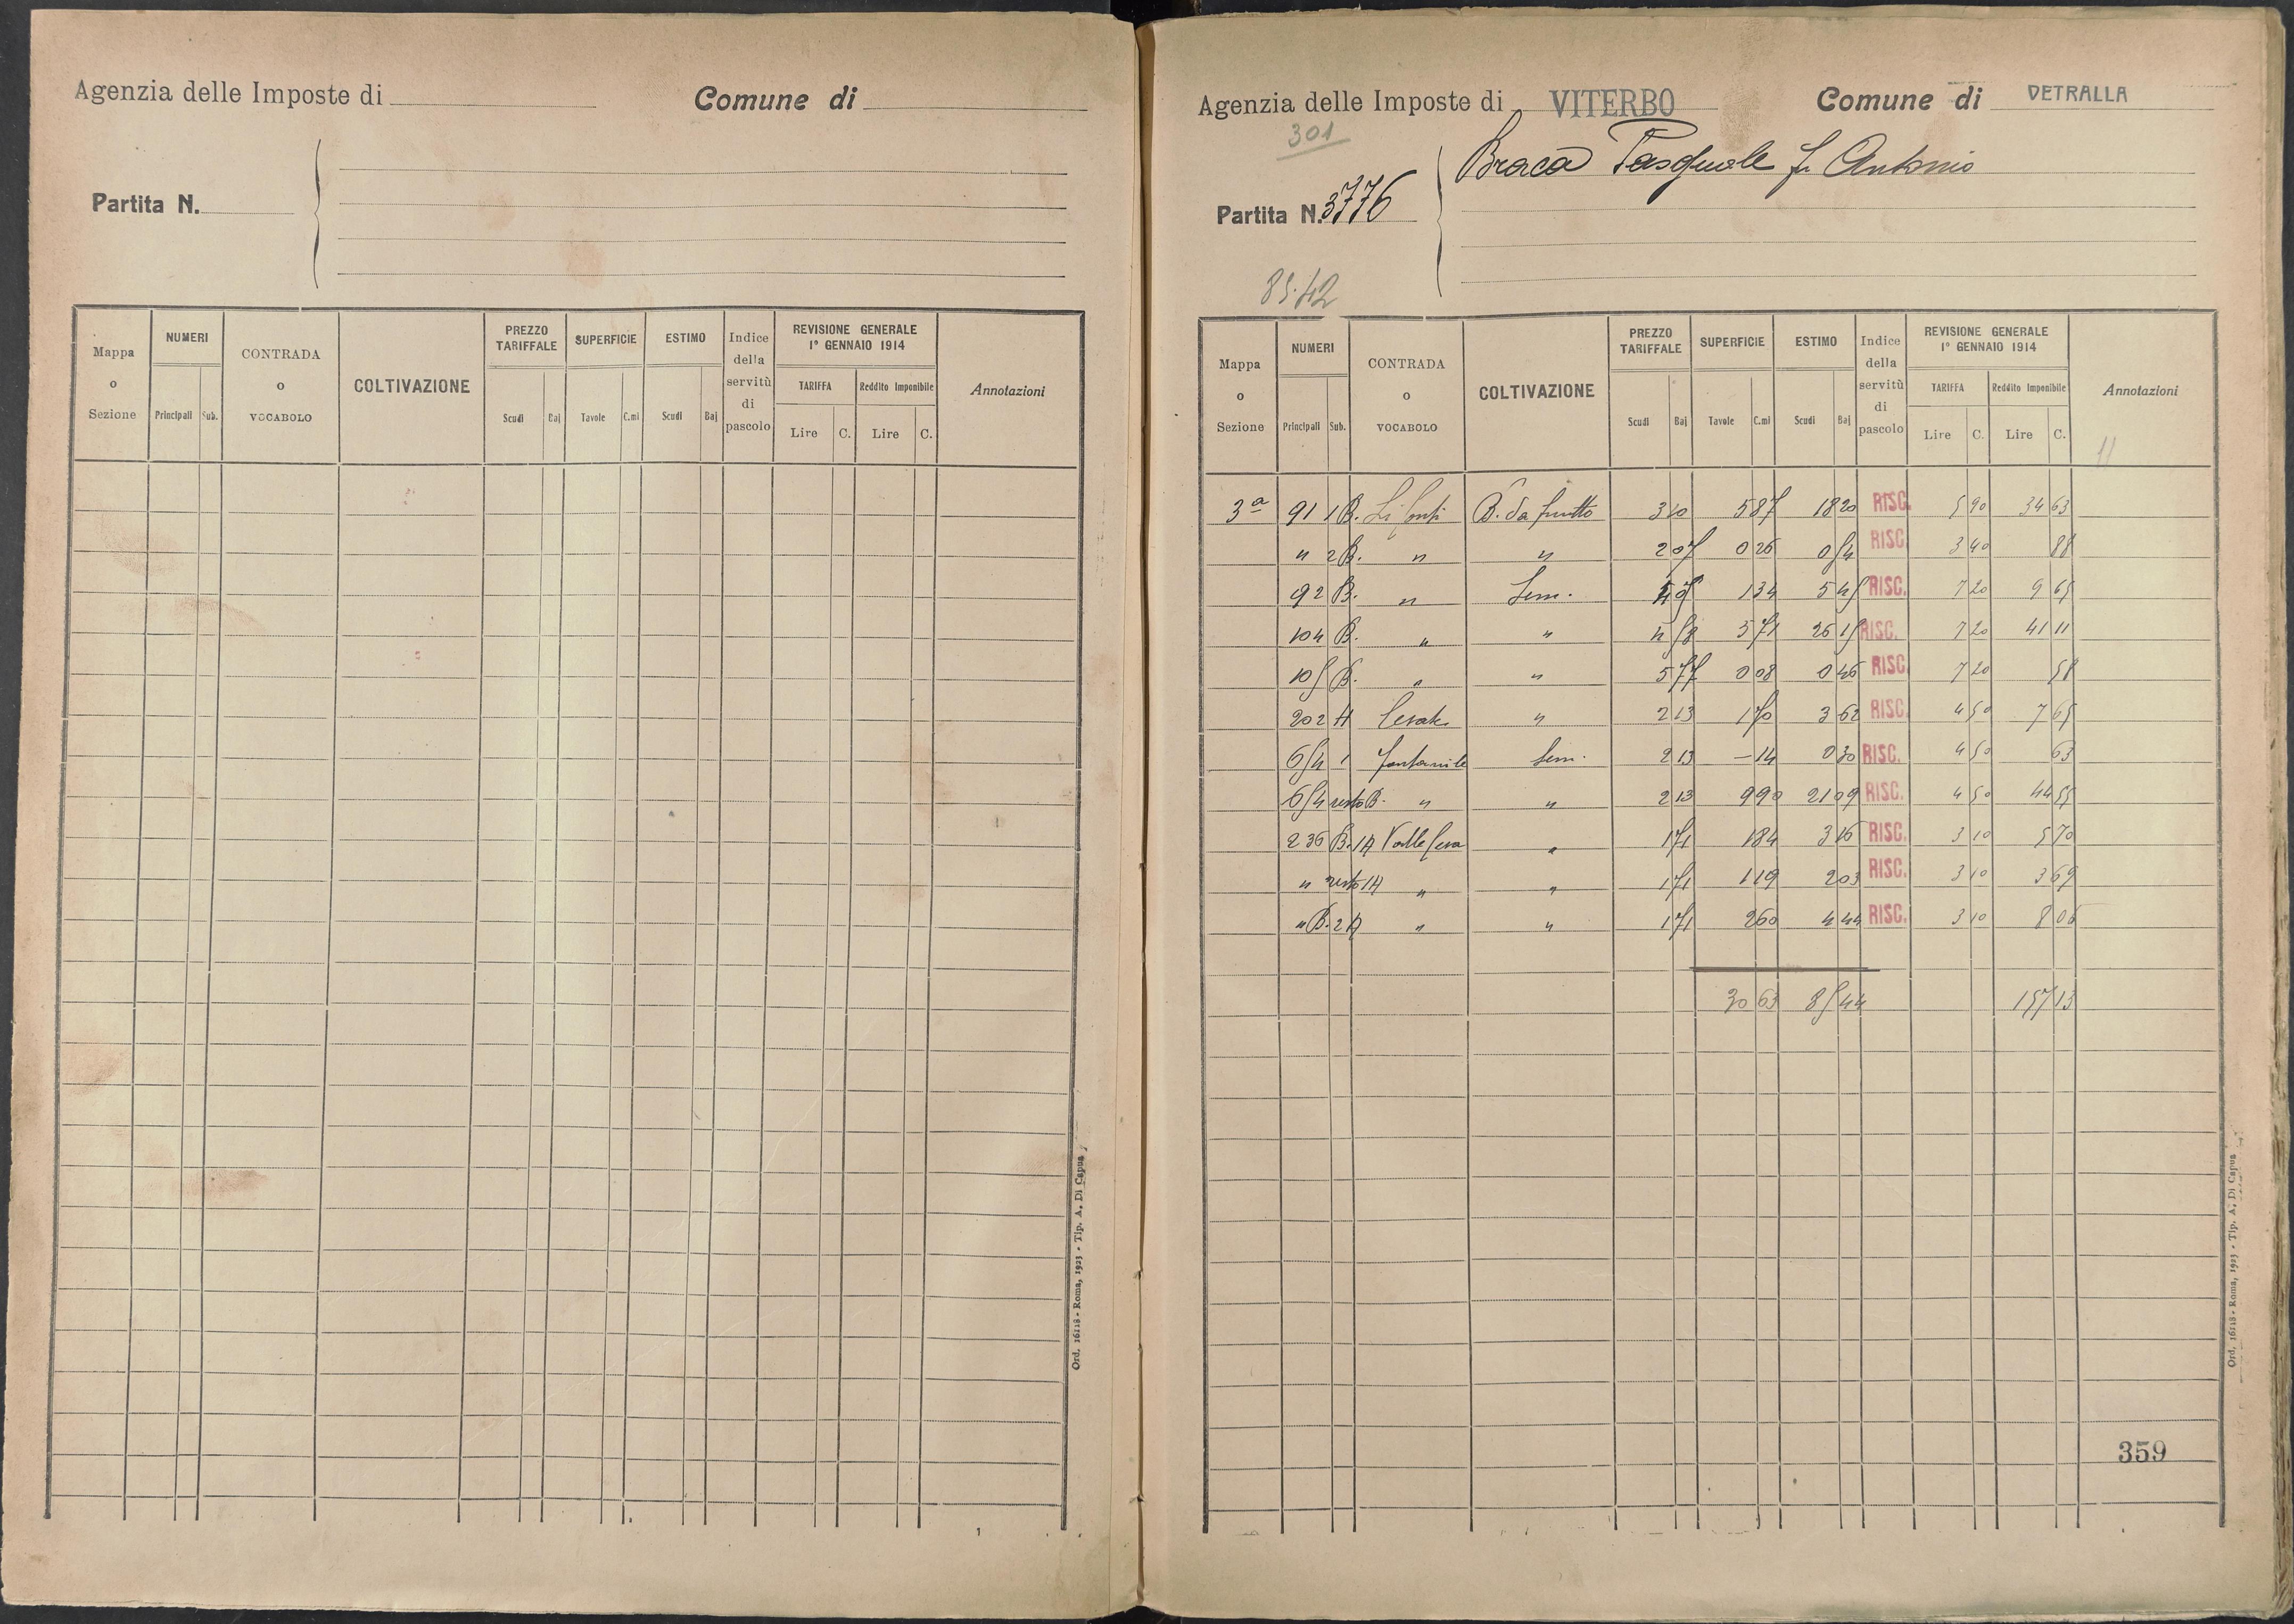 Agenzia delle Imposte di
Comune di
Partita N.
Mappa o Sezione | NUMERI Principali Sub. | CONTRADA o VOCABOLO | COLTIVAZIONE | PREZZO TARIFFALE Scudi Baj | SUPERFICIE Tavole C.mi | ESTIMO Scudi Baj | Indice della servitù di pascolo | REVISIONE GENERALE 1° GENNAIO 1914 TARIFFA Lire C. Reddito Imponibile Lire C. | Annotazioni
Ord. 16118 - Roma, 1923 - Tip. A. Di Capua
Agenzia delle Imposte di VITERBO
Comune di VETRALLA
301
Braca Pasquale f. Antonio
Partita N. 3776
85.42
Mappa o Sezione | NUMERI Principali Sub. | CONTRADA o VOCABOLO | COLTIVAZIONE | PREZZO TARIFFALE Scudi Baj | SUPERFICIE Tavole C.mi | ESTIMO Scudi Baj | Indice della servitù di pascolo | REVISIONE GENERALE 1° GENNAIO 1914 TARIFFA Lire C. Reddito Imponibile Lire C. | Annotazioni
11
3ª 91 1 B. B. da frutto 3 10 5 87 18 20 RISC. 5 90 34 63
" 2 B. " " 2 07 0 26 0 54 RISC. 3 40 88
92 B. " Sem. 1 34 5 45 RISC. 7 20 9 65
104 B. " " 4 58 5 71 26 15 RISC. 7 20 41 11
105 B. " " 5 77 0 08 0 46 RISC. 7 20 58
202 A " 2 13 1 70 3 62 RISC. 4 50 7 65
654 1 Fontanile Sem. 2 13 – 14 0 30 RISC. 4 50 63
654 resto B. " " 2 13 9 90 21 09 RISC. 4 50 44 55
236 B. 1A Valle Cesa " 1 71 1 84 3 16 RISC. 3 10 5 70
" resto 1A " " 1 71 1 19 2 03 RISC. 3 10 3 69
" B. 2A " " 1 71 2 60 4 44 RISC. 3 10 8 06
30 63 85 44 157 13
359
Ord. 16118 - Roma, 1923 - Tip. A. Di Capua